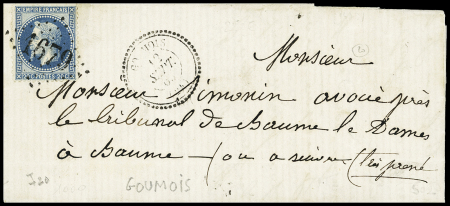 EMPIRE FRANÇAIS
1679
Monsieur
Monsieur Simonin avoué près
le tribunal de Baume les Dames
à Baume — ou a suivre (très pressé
J20
GOUMOIS